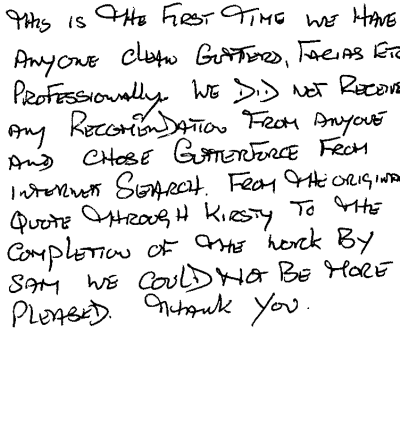 THIS IS THE FIRST TIME WE HAVE
ANYONE CLEAN GUTTERS, FACIAS ETC
PROFESSIONALLY. WE DID NOT RECEIVE
ANY RECOMENDATION FROM ANYONE
AND CHOSE GUTTERFORCE FROM
INTERNET SEARCH. FROM THE ORIGINA
QUOTE THROUGH KIRSTY TO THE
COMPLETION OF THE WORK BY
SAM WE COULD NOT BE MORE
PLEASED. THANK YOU.